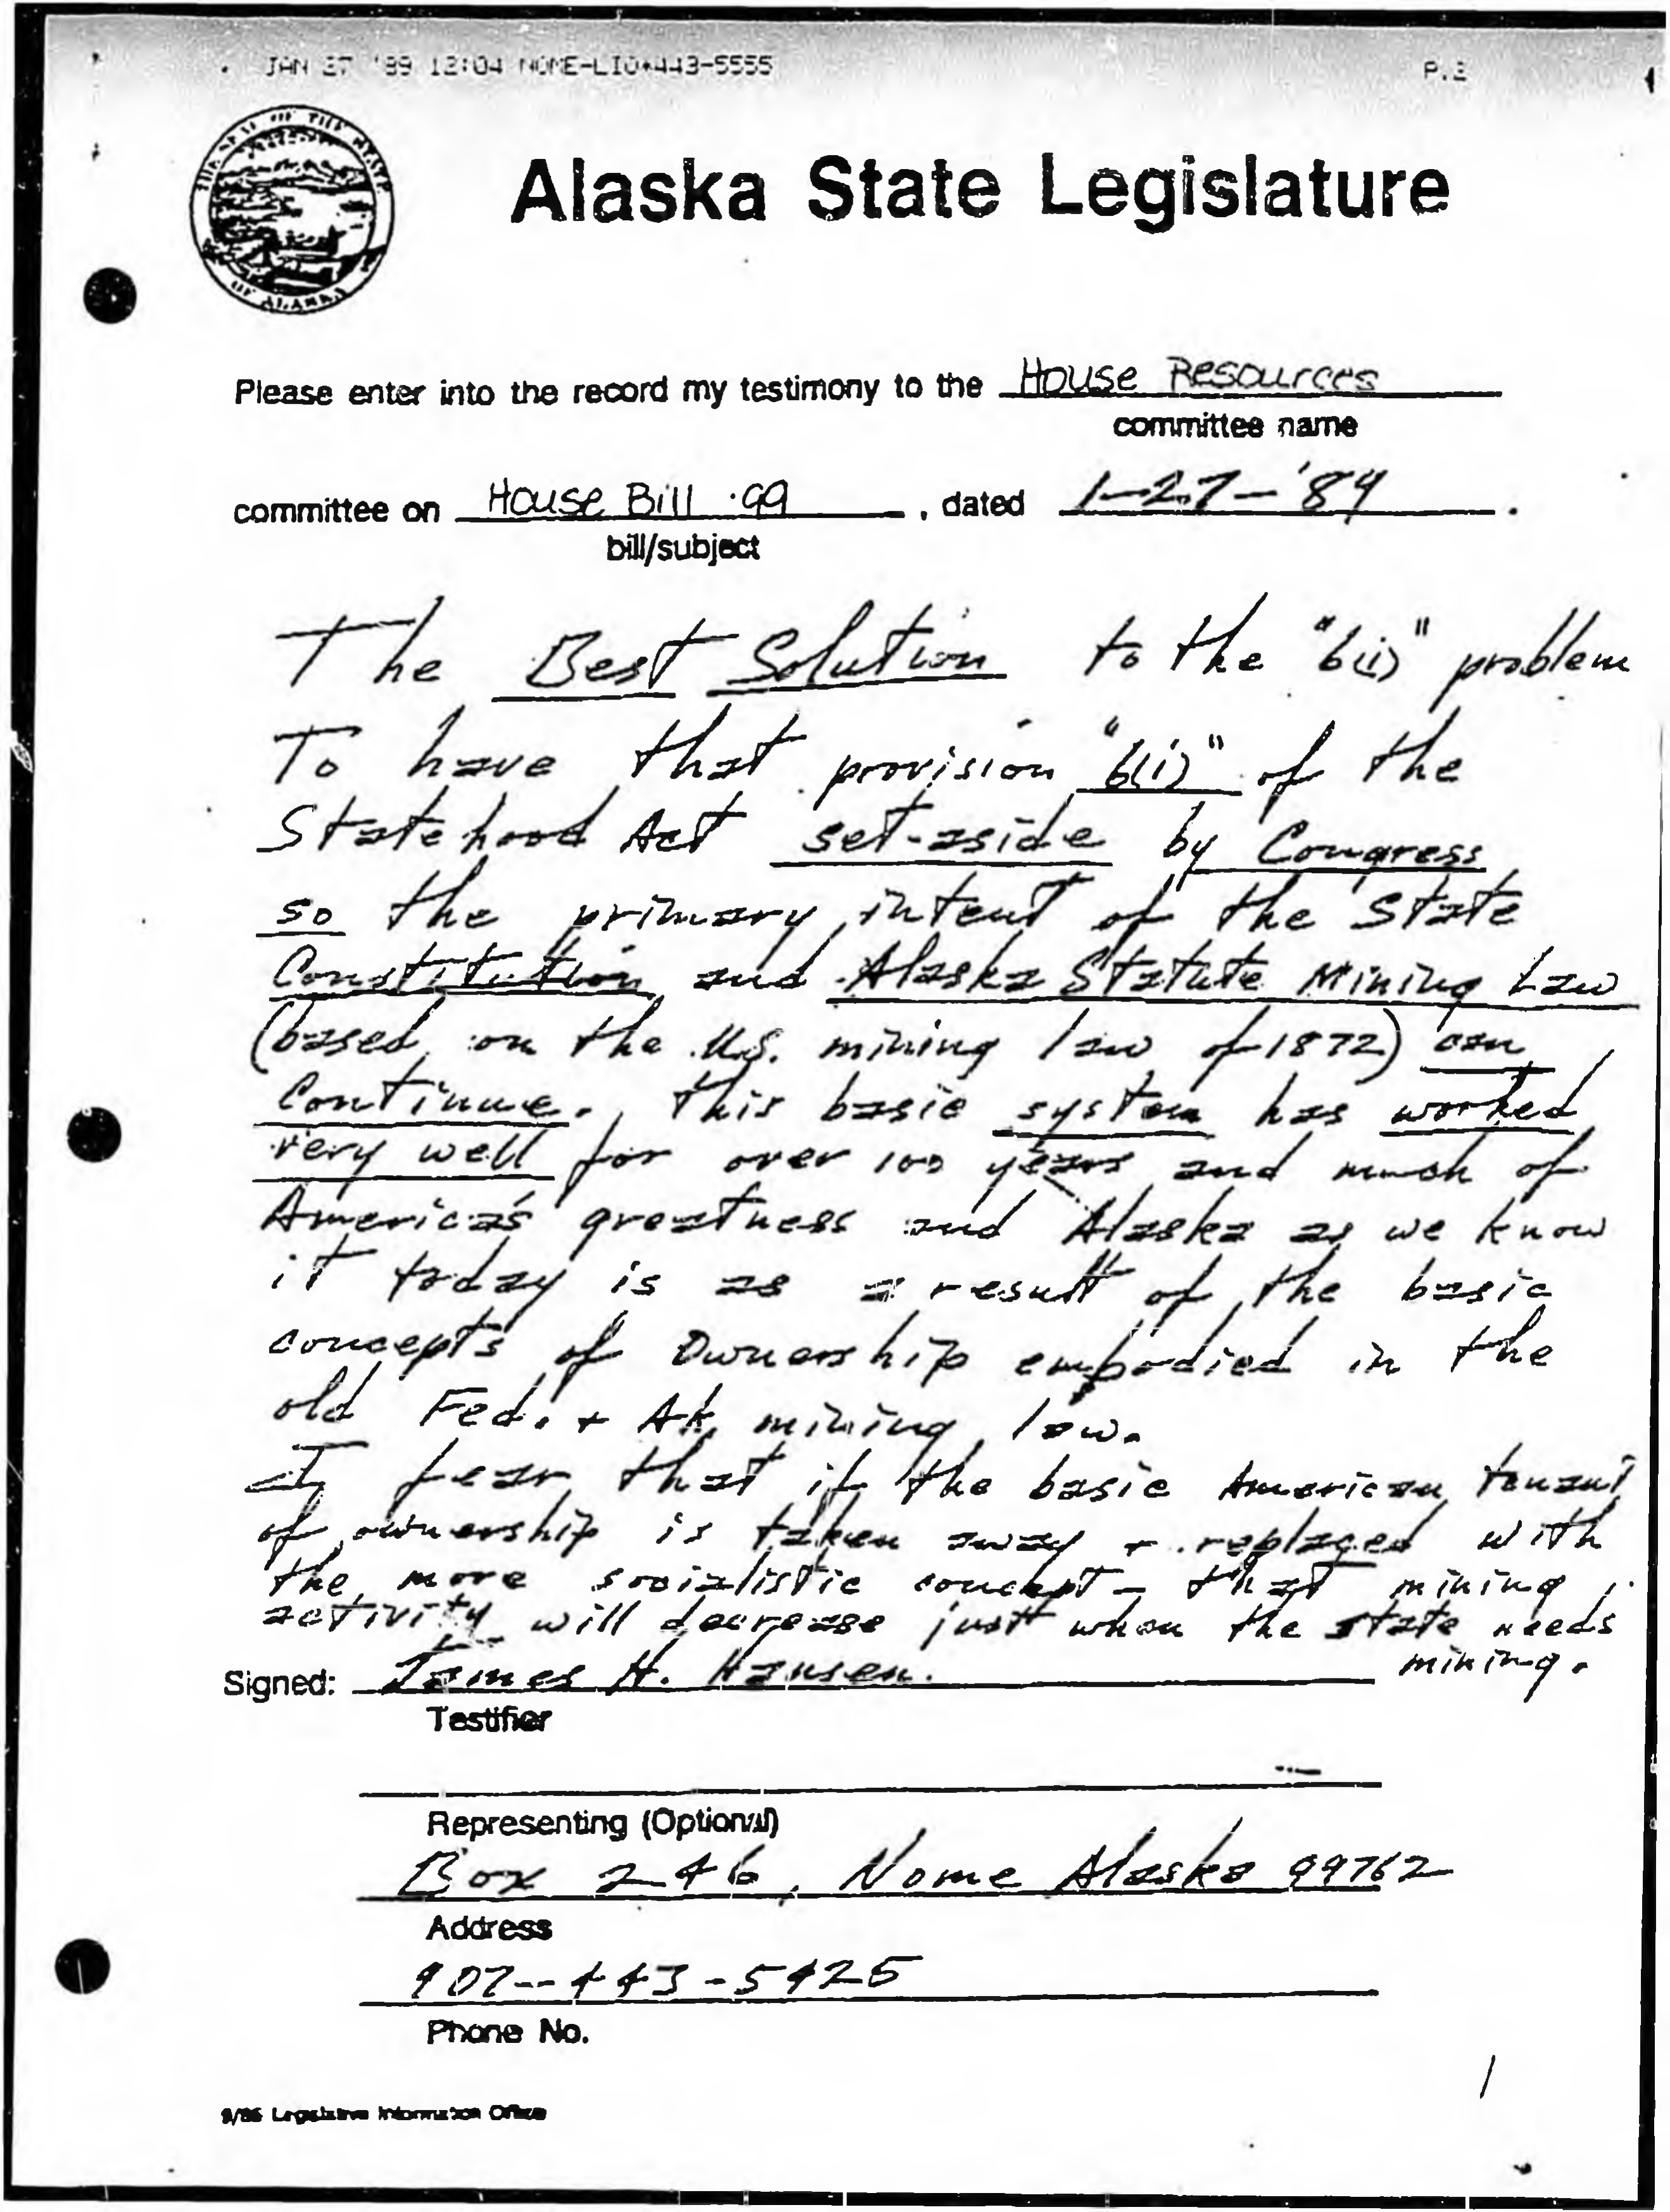 JAN 27 '89 12:04 NOME-LIO*443-5555 P.2
THE SEAL OF THE STATE
OF ALASKA
Alaska State Legislature
Please enter into the record my testimony to the House Resources
committee name
committee on House Bill 99, dated 1-27-'89.
bill/subject
The Best Solution to the "6(i)" problem
To have that provision "6(i)" of the
Statehood Act set-aside by Congress
so the primary intent of the State
Constitution and Alaska Statute Mining Law
(based on the U.S. mining law of 1872) can
Continue. This basic system has worked
very well for over 100 years and much of
America's greatness and Alaska as we know
it today is as a result of the basic
concepts of Ownership embodied in the
old Fed. + Ak. mining law.
I fear that if the basic American tenant
of ownership is taken away + replaced with
the more socialistic concept - that mining
activity will decrease just when the state needs
mining.
Signed: James H. Hansen.
Testifier
Representing (Optional)
Box 246, Nome Alaska 99762
Address
907--443-5425
Phone No.
1
9/86 Legislative Information Office